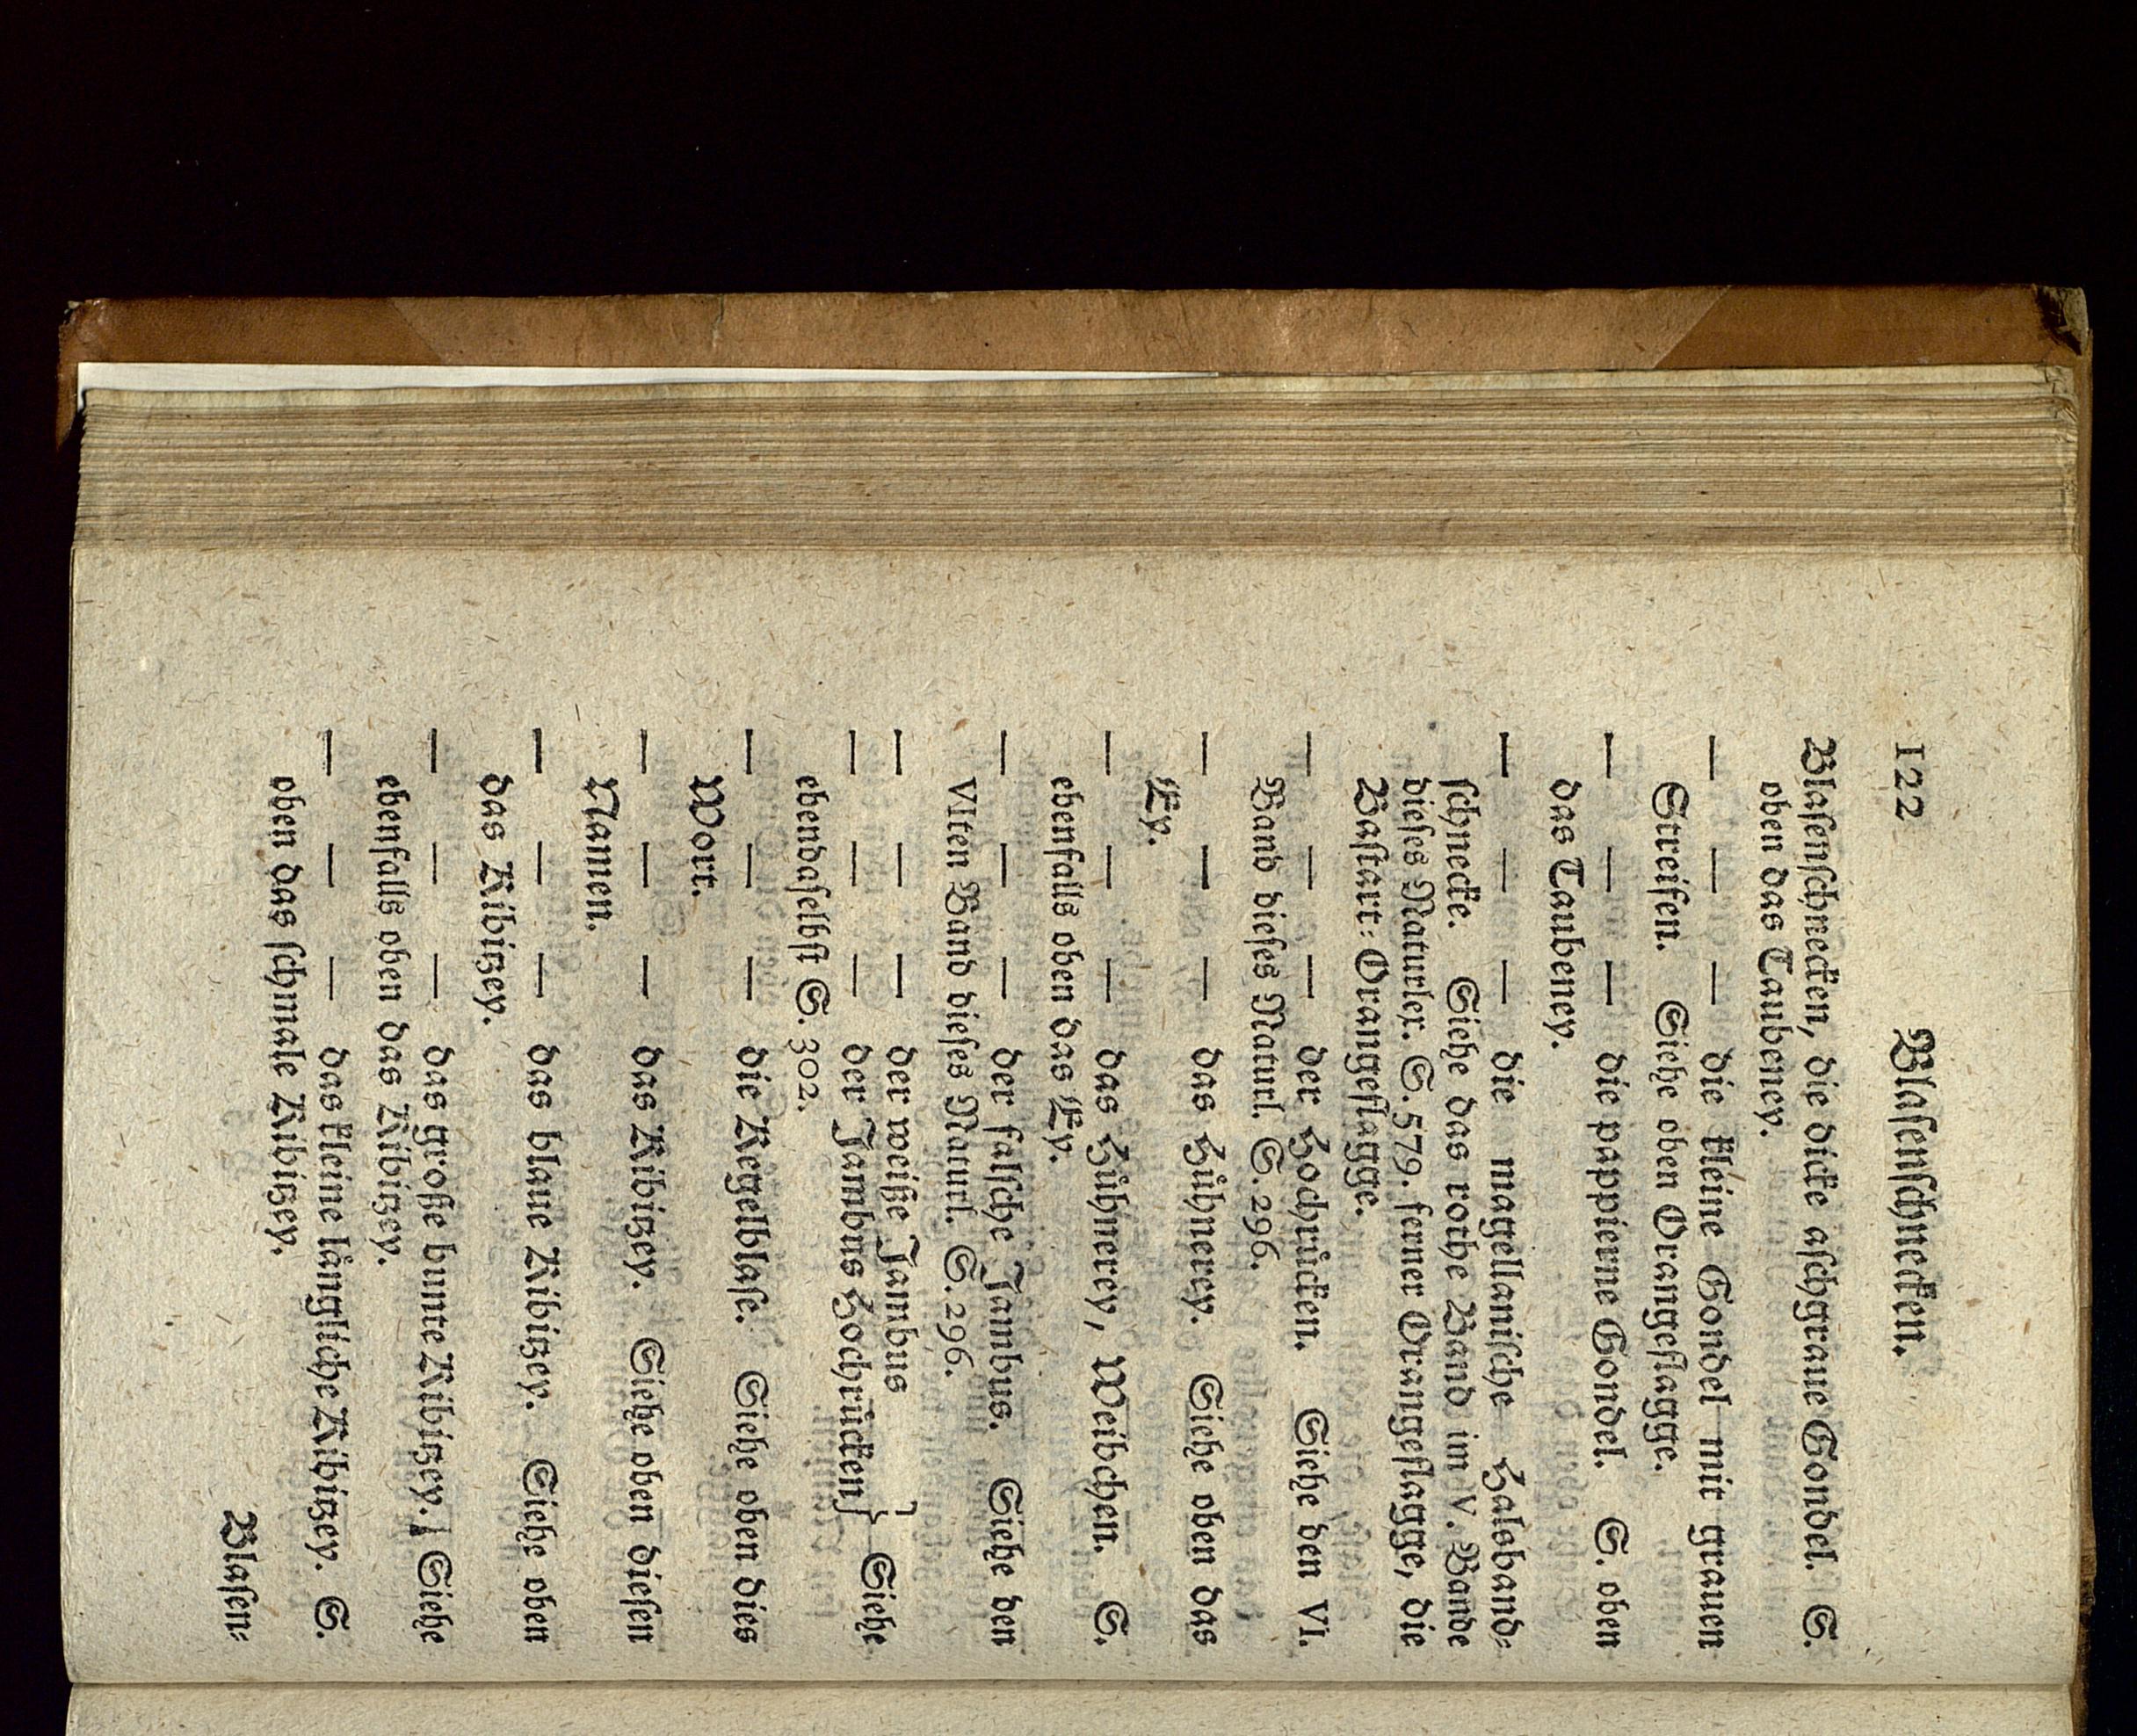 122 Blaſenſchnecken.
Blaſenſchnecken, die dicke aſchgraue Gondel. S.
oben das Taubeney.
— — — die kleine Gondel mit grauen
Streifen. Siehe oben Orangeflagge.
— — — die pappierne Gondel. S. oben
das Taubeney.
— — — die magellaniſche Halsband-
ſchnecke. Siehe das rothe Band im V. Bande
dieſes Naturlex. S. 579. ferner Orangeflagge, die
Baſtart-Orangeflagge.
— — — der Hochrücken. Siehe den VI.
Band dieſes Naturl. S. 296.
— — — das Hühnerey. Siehe oben das
Ey.
— — — das Hühnerey, Weibchen. S.
ebenfalls oben das Ey.
— — — der falſche Jambus. Siehe den
VIten Band dieſes Naturl. S. 296.
— — — der weiße Jambus
— — — der Jambus Hochrücken} Siehe
ebendaſelbſt S. 302.
— — — die Kegelblaſe. Siehe oben dies
Wort.
— — — das Kibitzey. Siehe oben dieſen
Namen.
— — — das blaue Kibitzey. Siehe oben
das Kibitzey.
— — — das große bunte Kibitzey. Siehe
ebenfalls oben das Kibitzey.
— — — das kleine långliche Kibitzey. S.
oben das ſchmale Kibitzey.
Blaſen-